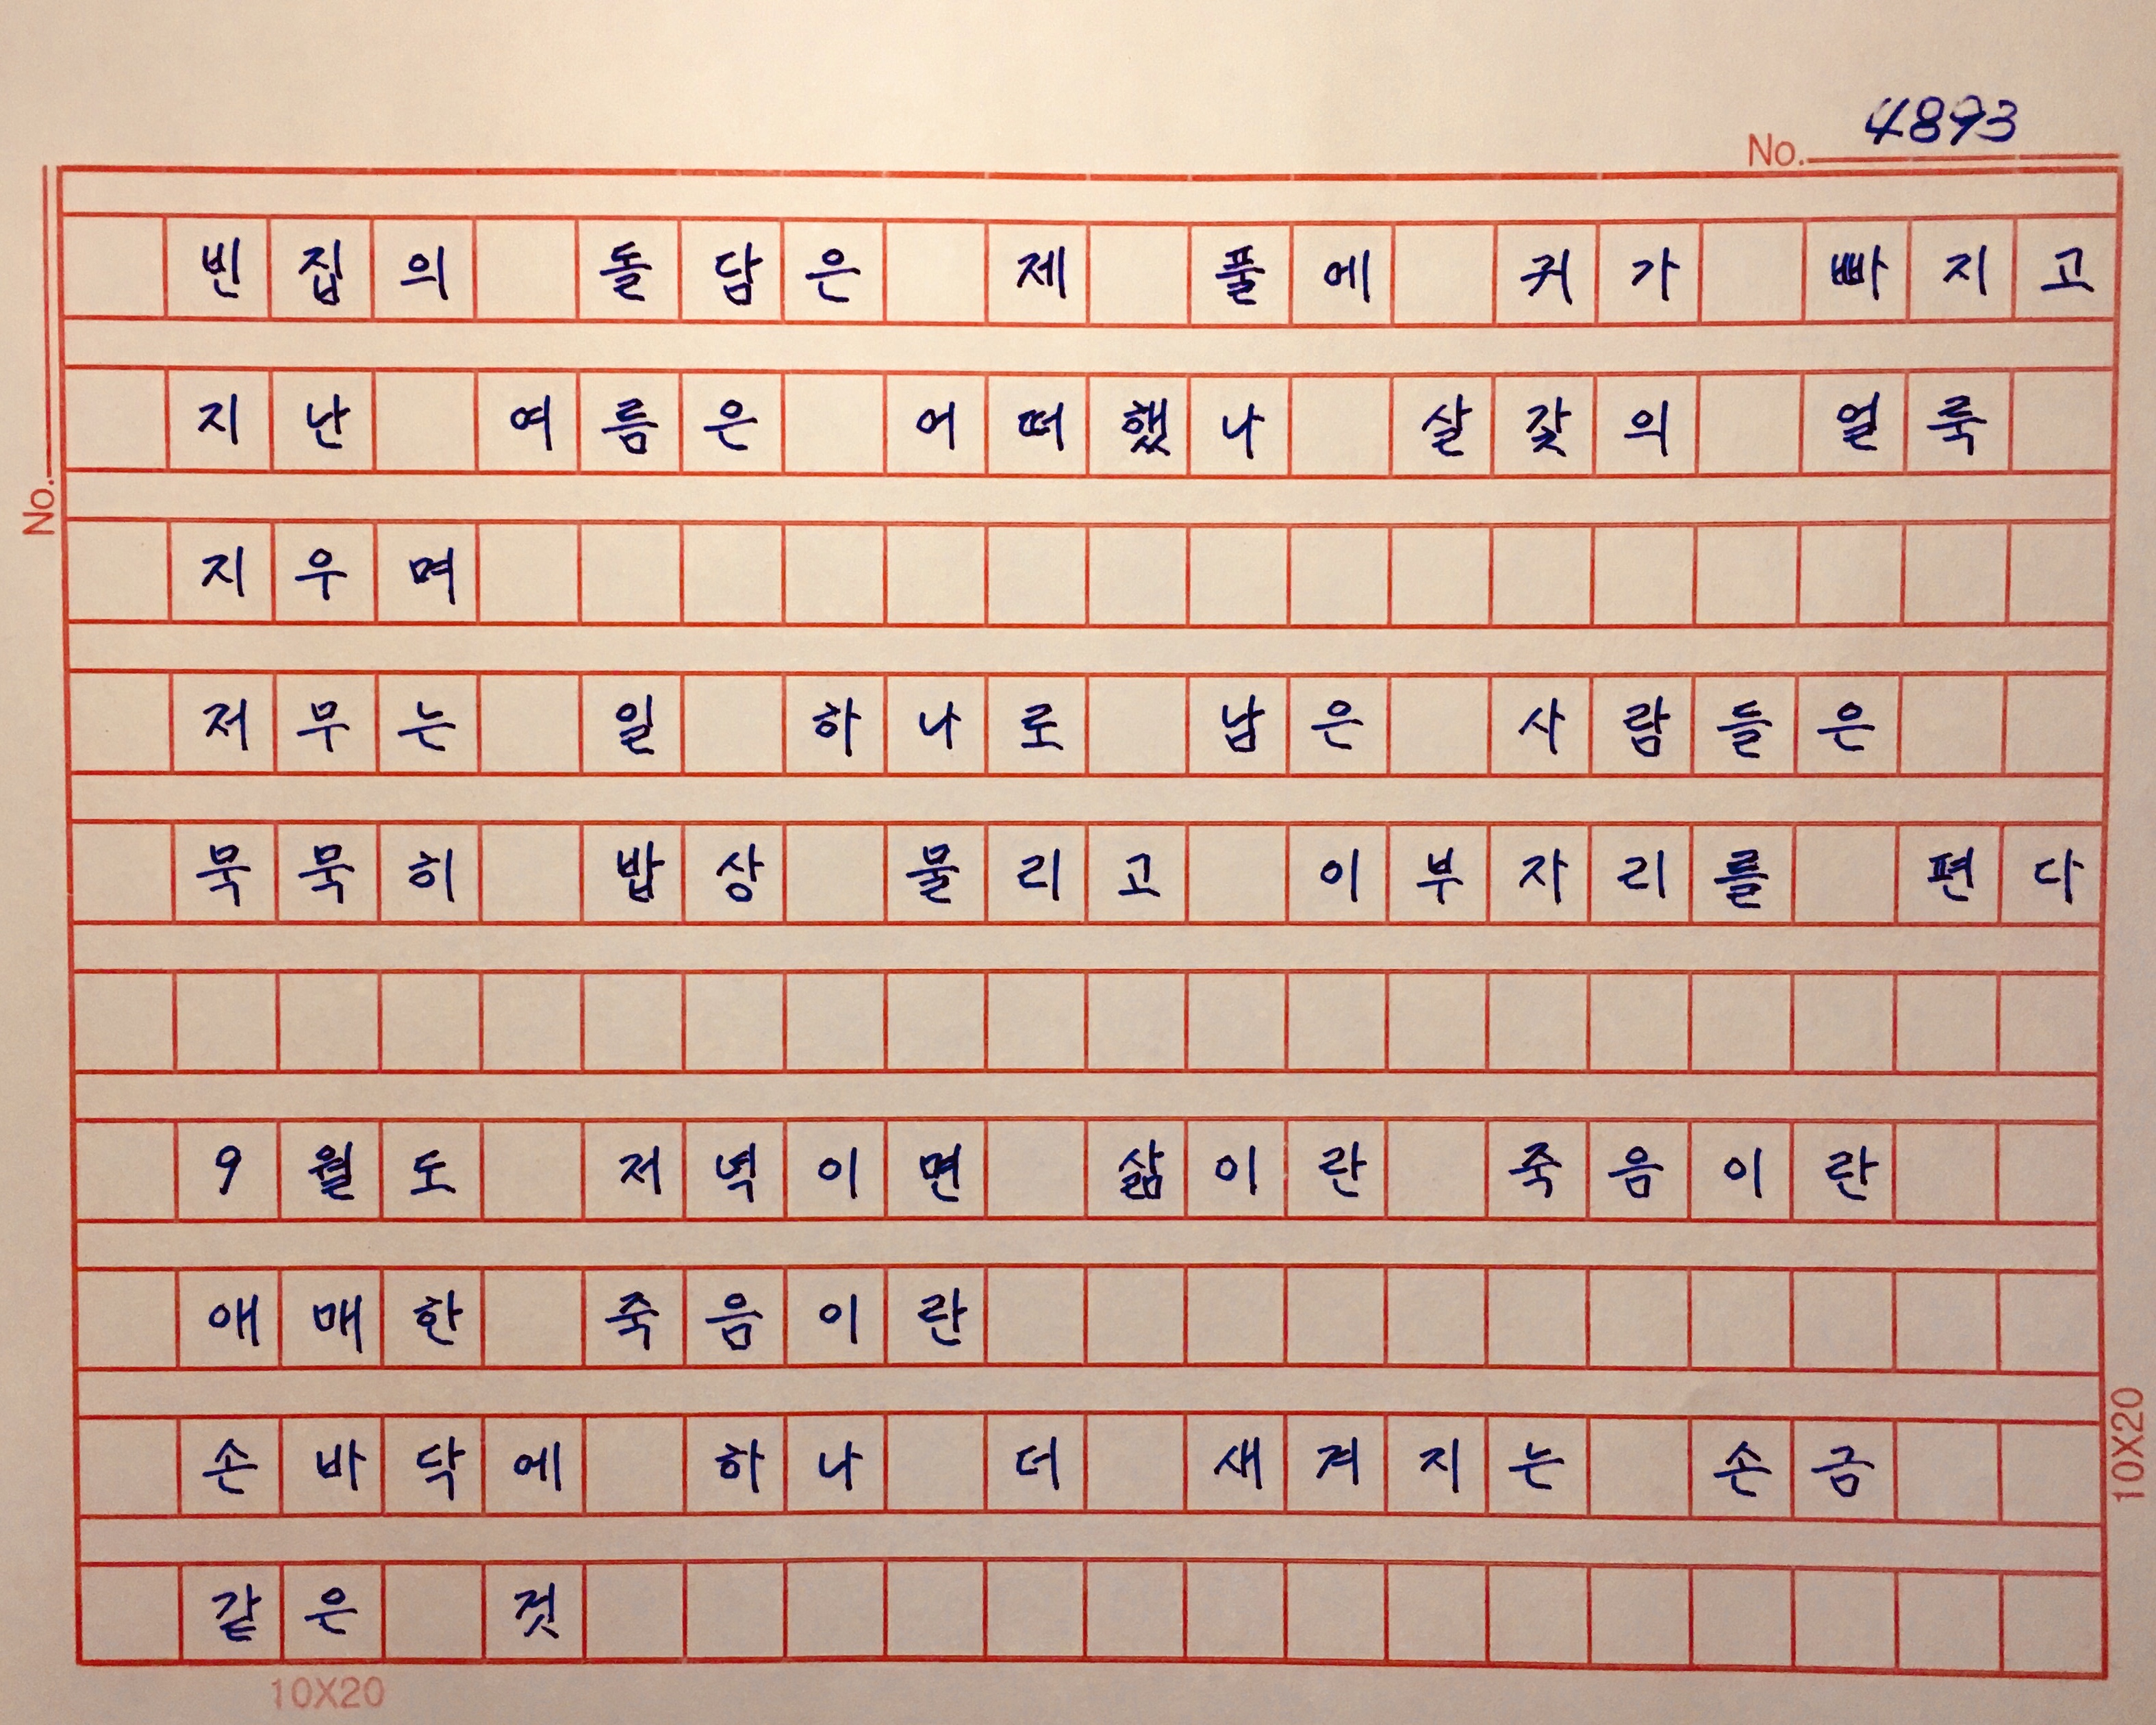 4893
No.
빈집의 돌담은 제 풀에 귀가 빠지고
지난 여름은 어떠했나 살갗의 얼룩
지우며
저무는 일 하나로 남은 사람들은
묵묵히 밥상 물리고 이부자리를 편다
9월도 저녁이면 삶이란 죽음이란
애매한 죽음이란
손바닥에 하나 더 새겨지는 손금
같은 것
No.
10X20
10X20